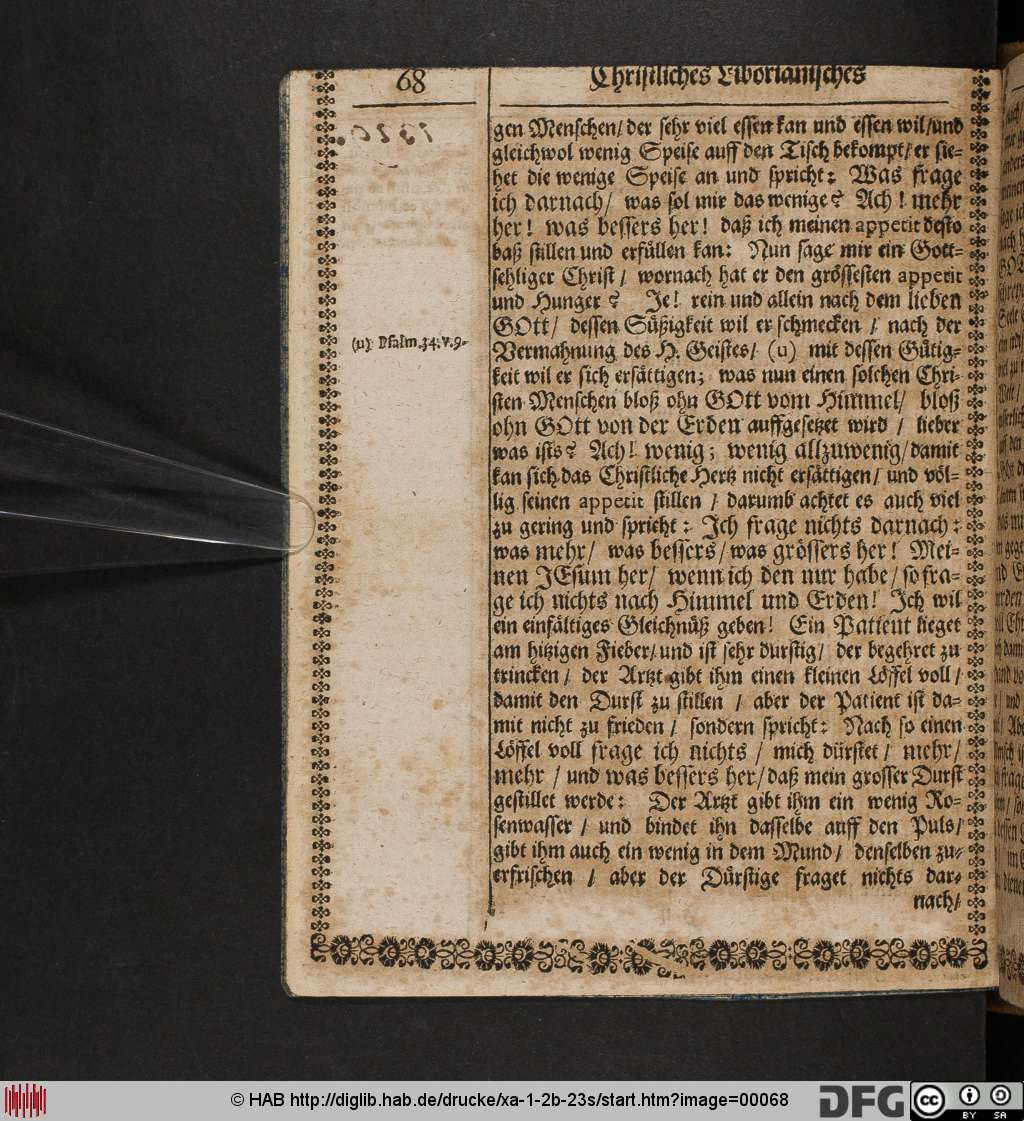 68
Christliches Liborianisches
gen Menschen/ der sehr viel essen kan und essen wil/ und
gleichwol wenig Speise auff den Tisch bekompt/ er sie-
het die wenige Speise an und spricht: Was frage
ich darnach/ was sol mir das wenige? Ach! mehr
her! was bessers her! daß ich meinen appetit desto
baß stillen und erfüllen kan: Nun sage mir ein Gott-
sehliger Christ/ wornach hat er den grössesten appetit
und Hunger? Je! rein und allein nach dem lieben
GOtt/ dessen Süßigkeit wil er schmecken/ nach der
(u) Psalm. 34. v. 9.
Vermahnung des H. Geistes/ (u) mit dessen Gütig-
keit wil er sich ersättigen; was nun einen solchen Chri-
sten Menschen bloß ohn GOtt vom Himmel/ bloß
ohn GOtt von der Erden auffgesetzet wird/ lieber
was ists? Ach! wenig; wenig allzuwenig/ damit
kan sich das Christliche Hertz nicht ersättigen/ und völ-
lig seinen appetit stillen/ darumb achtet es auch viel
zu gering und spricht: Ich frage nichts darnach:
was mehr/ was bessers/ was grössers her! Mei-
nen JEsum her/ wenn ich den nur habe/ so fra-
ge ich nichts nach Himmel und Erden! Ich wil
ein einfältiges Gleichnüß geben! Ein Patient lieget
am hitzigen Fieber/ und ist sehr durstig/ der begehret zu
trincken/ der Artzt gibt ihm einen kleinen Löffel voll/
damit den Durst zu stillen/ aber der Patient ist da-
mit nicht zu frieden/ sondern spricht: Nach so einen
Löffel voll frage ich nichts/ mich dürstet/ mehr/
mehr/ und was bessers her/ daß mein grosser Durst
gestillet werde: Der Artzt gibt ihm ein wenig Ro-
senwasser/ und bindet ihn dasselbe auff den Puls/
gibt ihm auch ein wenig in dem Mund/ denselben zu-
erfrischen/ aber der Dürstige fraget nichts dar-
nach/
© HAB http://diglib.hab.de/drucke/xa-1-2b-23s/start.htm?image=00068
DFG
cc
BY SA